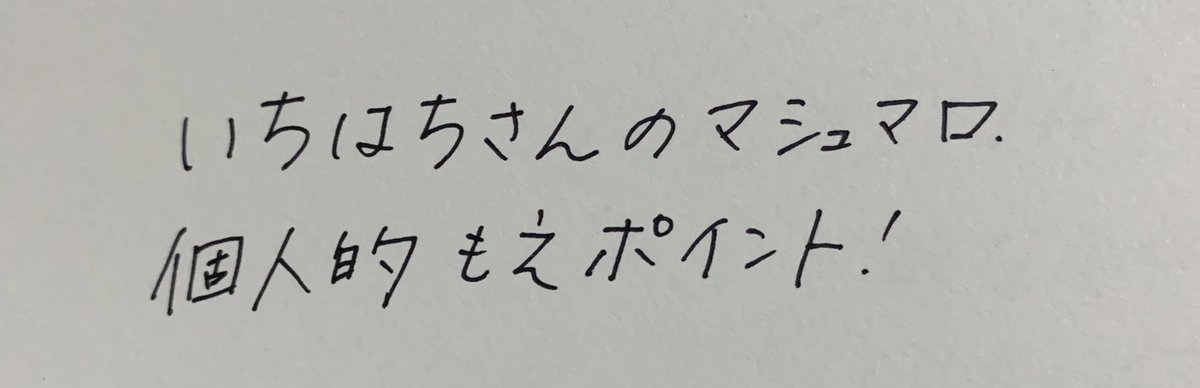 いちはちさんのマシュマロ.
個人的もえポイント!